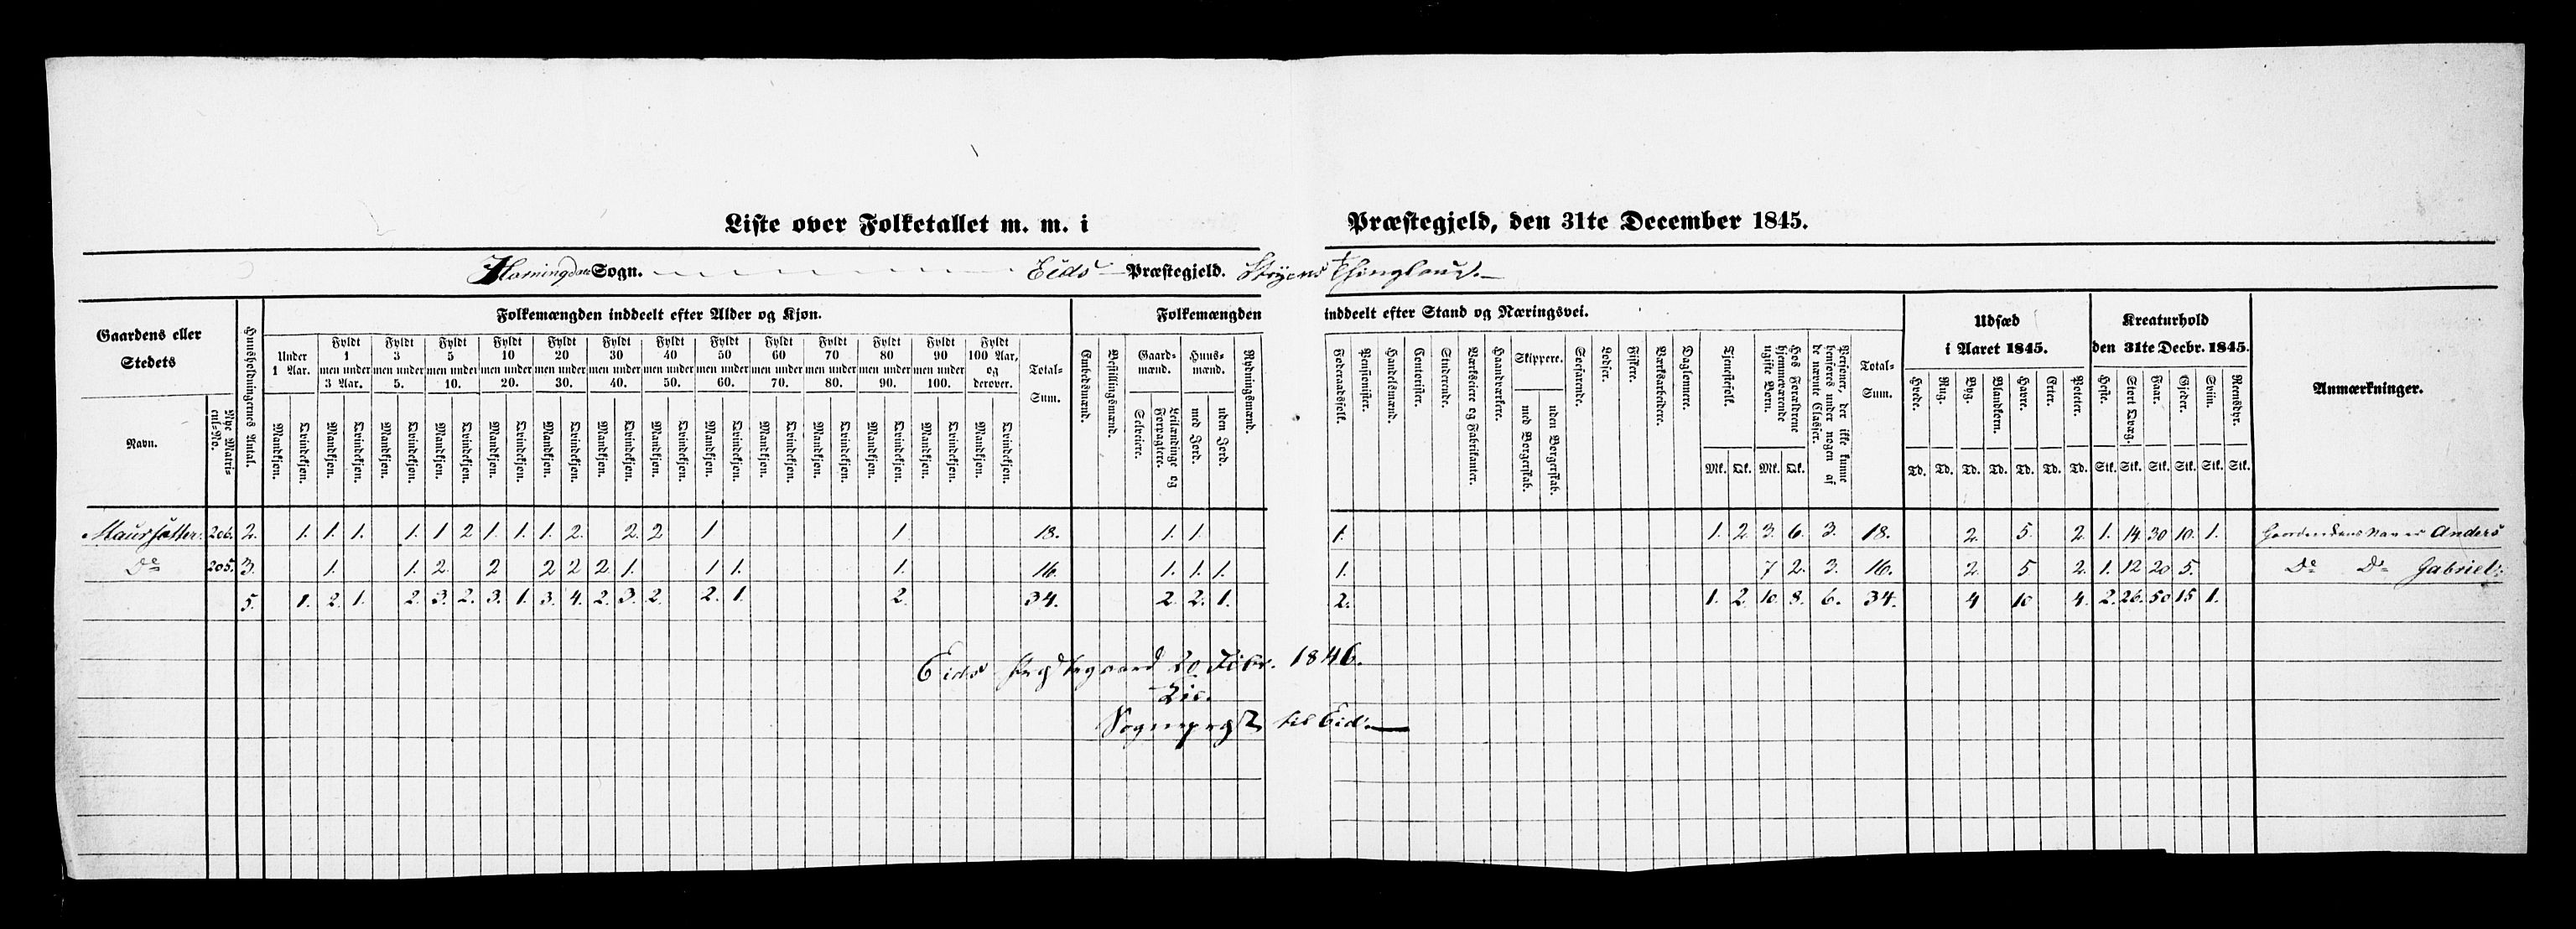 Liste over Folketallet m. m. i Præstegjeld, den 31te December 1845.
Sogn. Eids Præstegjeld.
Gaardens eller Stedets
Navn.
Nye Matricul-No.
Huusholdningernes Antal.
Folkemængden inddeelt efter Alder og Kjøn.
Under 1 Aar.
Fyldt 1 men under 3 Aar.
Fyldt 3 men under 5.
Fyldt 5 men under 10.
Fyldt 10 men under 20.
Fyldt 20 men under 30.
Fyldt 30 men under 40.
Fyldt 40 men under 50.
Fyldt 50 men under 60.
Fyldt 60 men under 70.
Fyldt 70 men under 80.
Fyldt 80 men under 90.
Fyldt 90 men under 100.
Fyldt 100 Aar, og derover.
Mandkjøn. Qvindekjøn. Mandkjøn. Qvindekjøn. Mandkjøn. Qvindekjøn. Mandkjøn. Qvindekjøn. Mandkjøn. Qvindekjøn. Mandkjøn. Qvindekjøn. Mandkjøn. Qvindekjøn. Mandkjøn. Qvindekjøn. Mandkjøn. Qvindekjøn. Mandkjøn. Qvindekjøn. Mandkjøn. Qvindekjøn. Mandkjøn. Qvindekjøn. Mandkjøn. Qvindekjøn. Mandkjøn. Qvindekjøn.
Total-Sum.
Folkemængden inddeelt efter Stand og Næringsvei.
Embedsmænd.
Bestillingsmænd.
Gaardmænd.
Selveiere.
Leilændinge og Forpagtere.
Huusmænd.
med Jord.
uden Jord.
Rydningsmænd.
Føderaadsfolk.
Pensionister.
Handelsmænd.
Contorister.
Studerende.
Værkseiere og Fabrikanter.
Haandværkere.
Skippere.
med Borgerskab.
uden Borgerskab.
Søefarende.
Lodser.
Fiskere.
Værksarbeidere.
Daglønnere.
Tjenestefolk.
Mk. Qk.
Hos Forældrene hjemmeværende ugifte Børn.
Mk. Qk.
Personer, der ikke kunne henføres under nogen af de nævnte Classer.
Total-Sum.
Udsæd i Aaret 1845.
Hvede. Rug. Byg. Blandkorn. Havre. Erter. Poteter.
Td. Td. Td. Td. Td. Td. Td.
Kreaturhold den 31te Decbr. 1845.
Heste. Stort Qvæg. Faar. Gjeder. Sviin. Reensdyr.
Stk. Stk. Stk. Stk. Stk. Stk.
Anmærkninger.
Maursætter 206. 2. 1. 1. 1. 1. 1 2 1. 1. 1. 2. 2. 2 1 1 18. 1. 1. 1. 1. 2 3. 6. 3. 18. 2. 5. 2. 1. 14. 30 10. 1. Anders
Do 205. 3. 1. 1. 2. 2 2 2 2. 1. 1 1. 1. 16. 1. 1. 1. 1. 7 2. 3. 16. 2. 5 2. 1. 12 20 5. Do Do Gabriel
5. 1. 2. 1. 2. 3. 2. 3. 1. 3. 4. 2. 3. 2. 2. 1. 2. 34. 2. 2. 1. 2. 1. 2. 10. 8. 6. 34. 4 10 4. 2. 26. 50 15 1.
Eids Præstegaard 20 Febr. 1846.
Sognepræst til Eid.